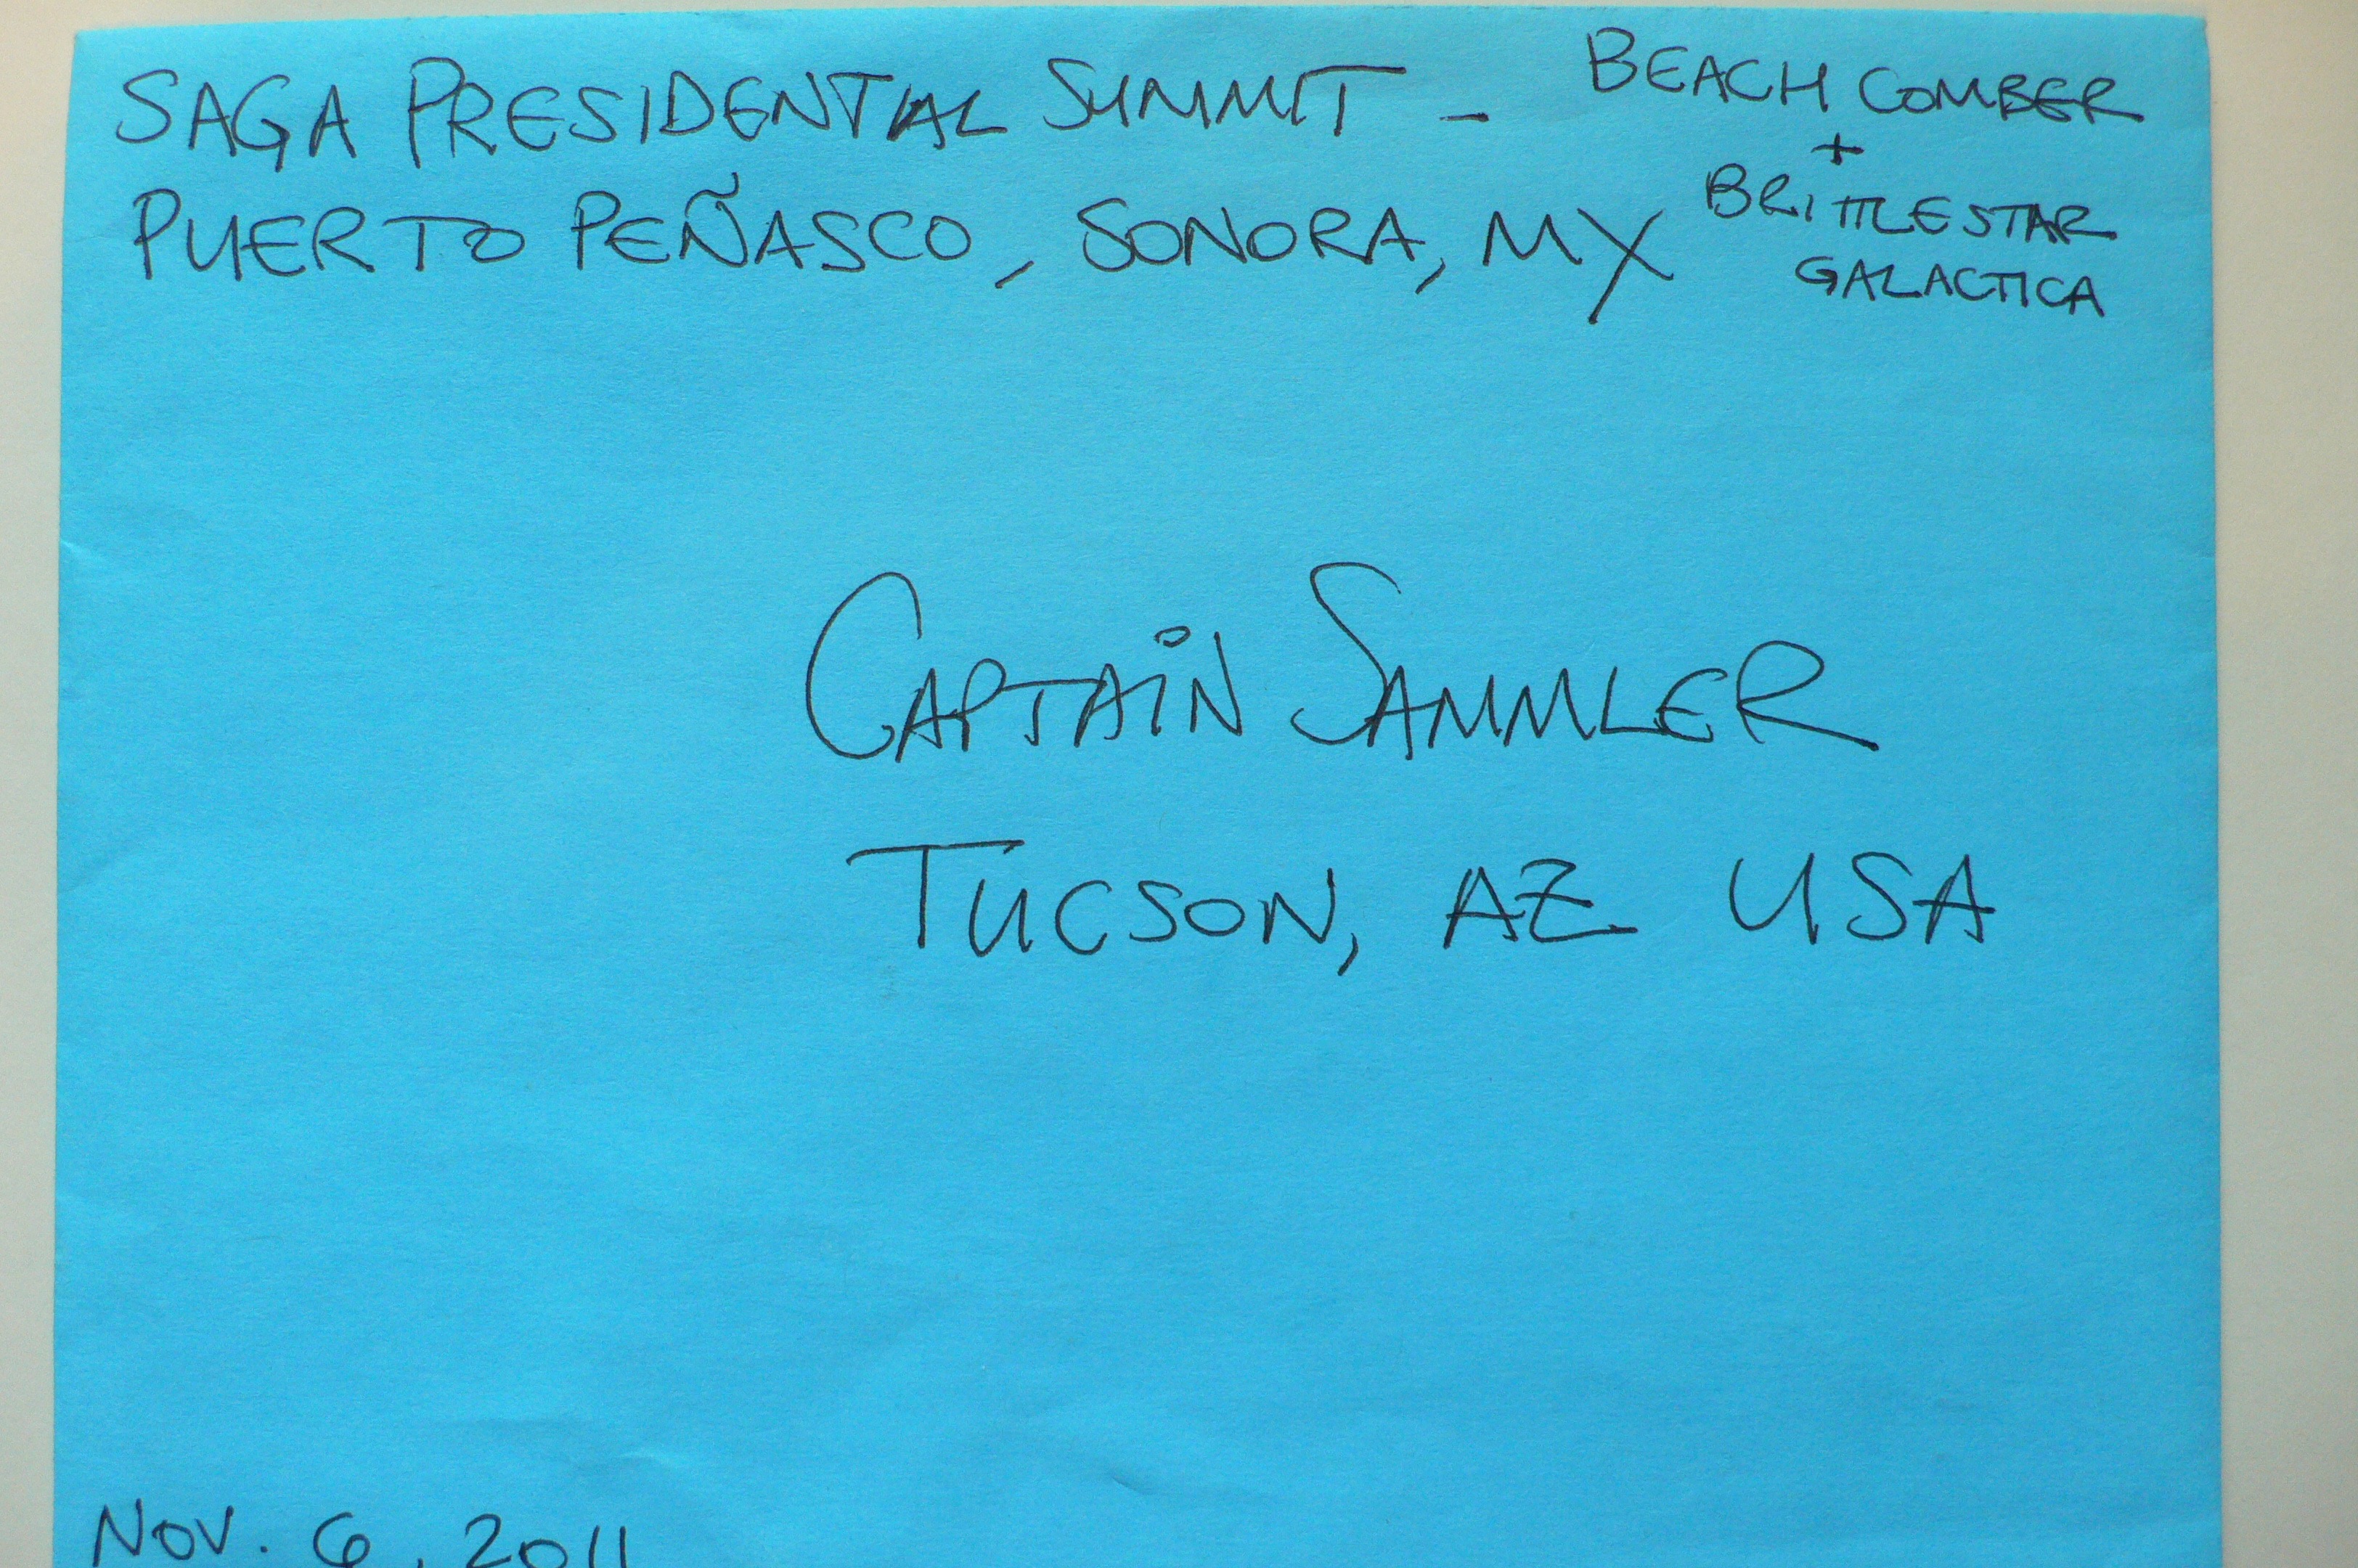 SAGA PRESIDENTIAL SUMMIT -
PUERTO PEÑASCO, SONORA, MX
BEACH COMBER
+
BRITTLESTAR
GALACTICA
CAPTAIN SAMMLER
TUCSON, AZ USA
NOV. 6, 2011